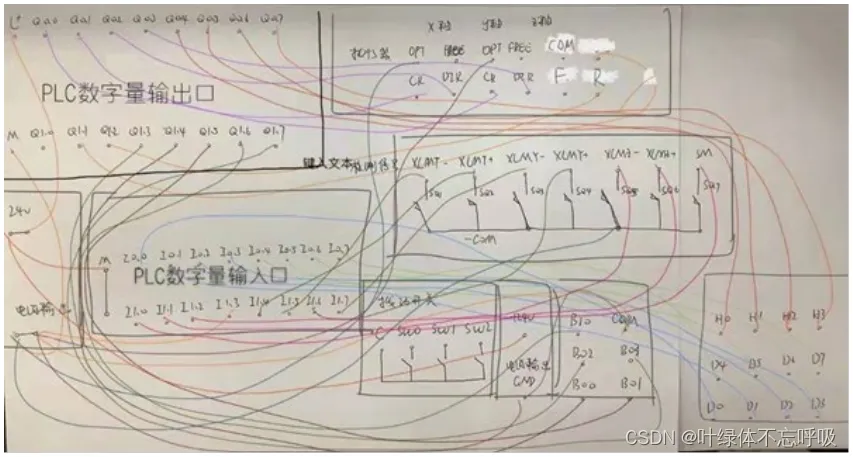 L+ Q0.0 Q0.1 Q0.2 Q0.3 Q0.4 Q0.5 Q0.6 Q0.7
X轴 Y轴
OPT FREE OPT FREE COM
CR DIR CR DIR F R
PLC数字量输出口
M Q1.0 Q1.1 Q1.2 Q1.3 Q1.4 Q1.5 Q1.6 Q1.7
键入文本
XLMT- XLMT+ YLMT- YLMT+ SM
SQ1 SQ2 SQ3 SQ4 SQ5 SQ6 SQ7
-COM
24V
M I0.0 I0.1 I0.2 I0.3 I0.4 I0.5 I0.6 I0.7
PLC数字量输入口
I1.0 I1.1 I1.2 I1.3 I1.4 I1.5 I1.6 I1.7
电源输出
开关
C SW0 SW1 SW2
24V
电源输出
GND
COM
B02 B03
B00 B01
H0 H1 H2 H3
D4 D5 D6 D7
D0 D1 D2 D3
CSDN @叶绿体不忘呼吸